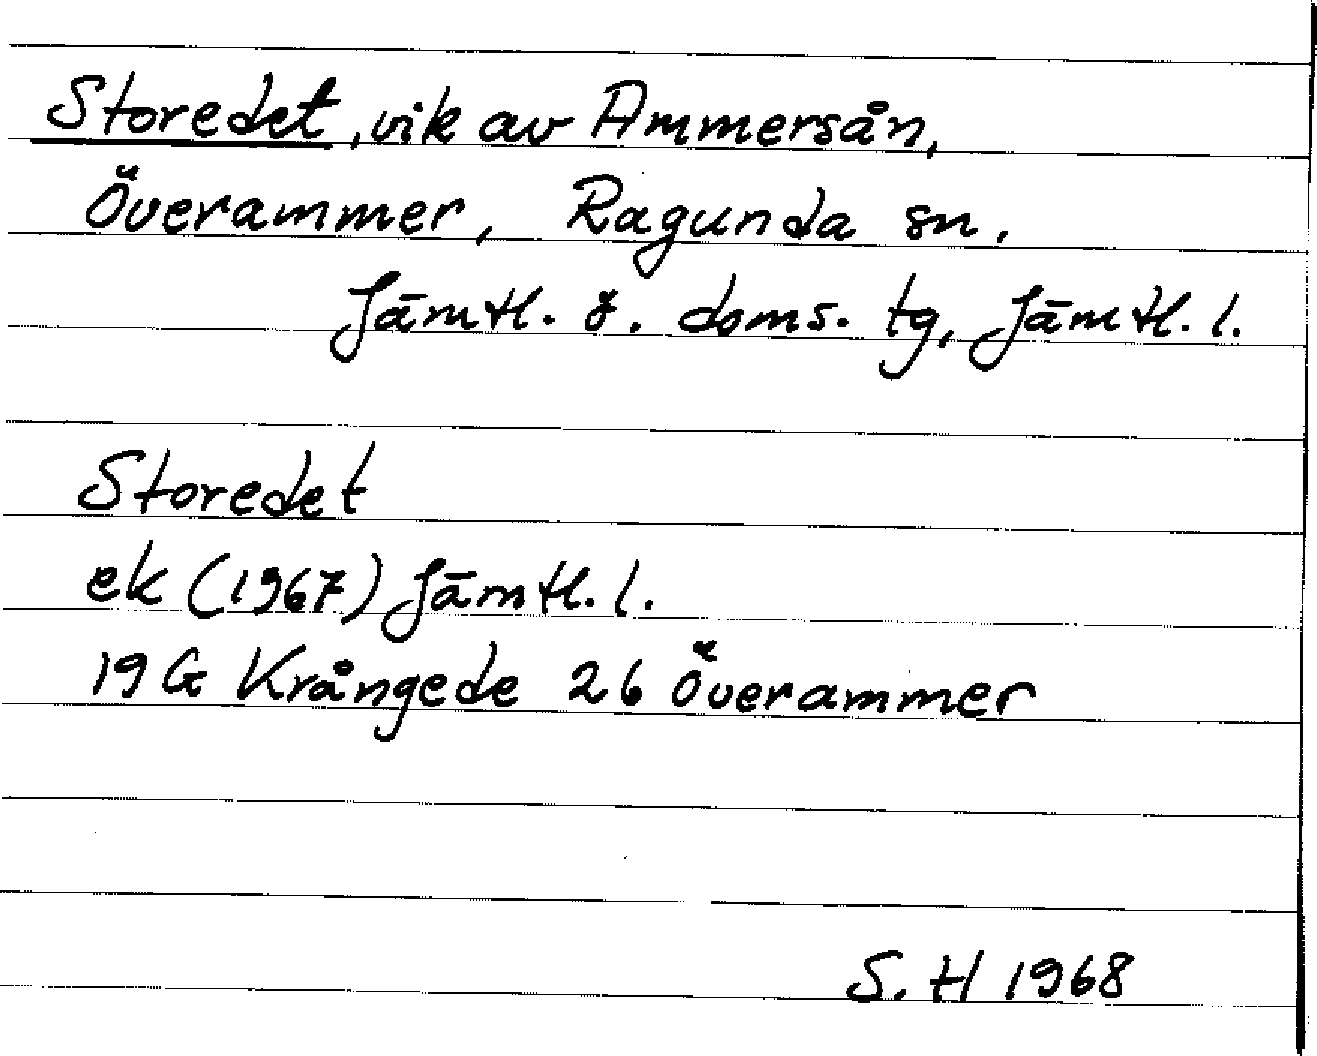 Storedet, vik av Ammersån,
Överammer, Ragunda sn.
Jämtl. ö. doms. tg, Jämtl. l.
Storedet
ek (1967) Jämtl. l.
19 G Krångede 26 Överammer
S. H 1968